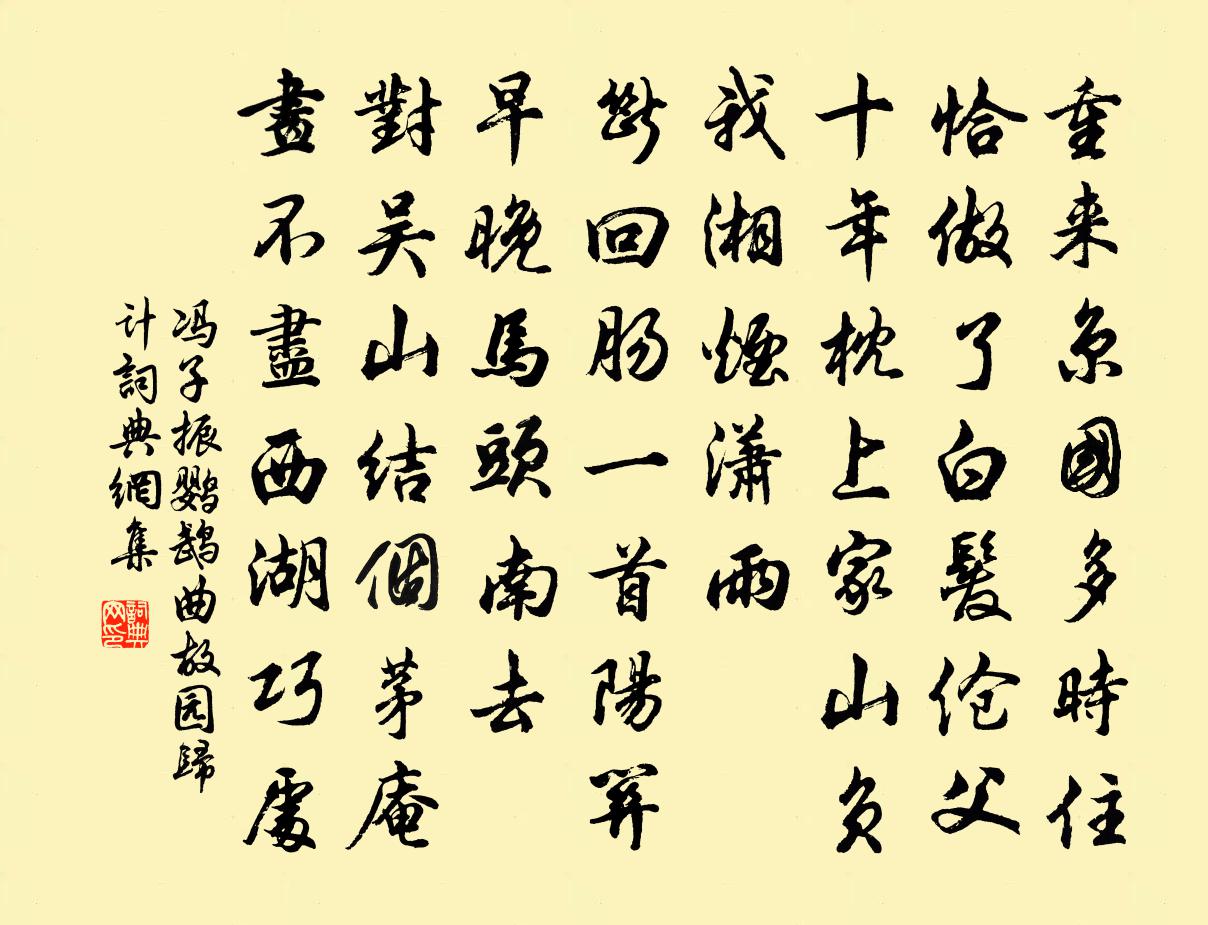 重来京國多時住
恰做了白髮伧父
十年枕上家山负
我湘煙潇雨
斷回肠一首陽関
早晚馬頭南去
對吴山结個茅庵
畫不盡西湖巧處
冯子振鹦鹉曲故园歸
计詞典網集
詞典网印